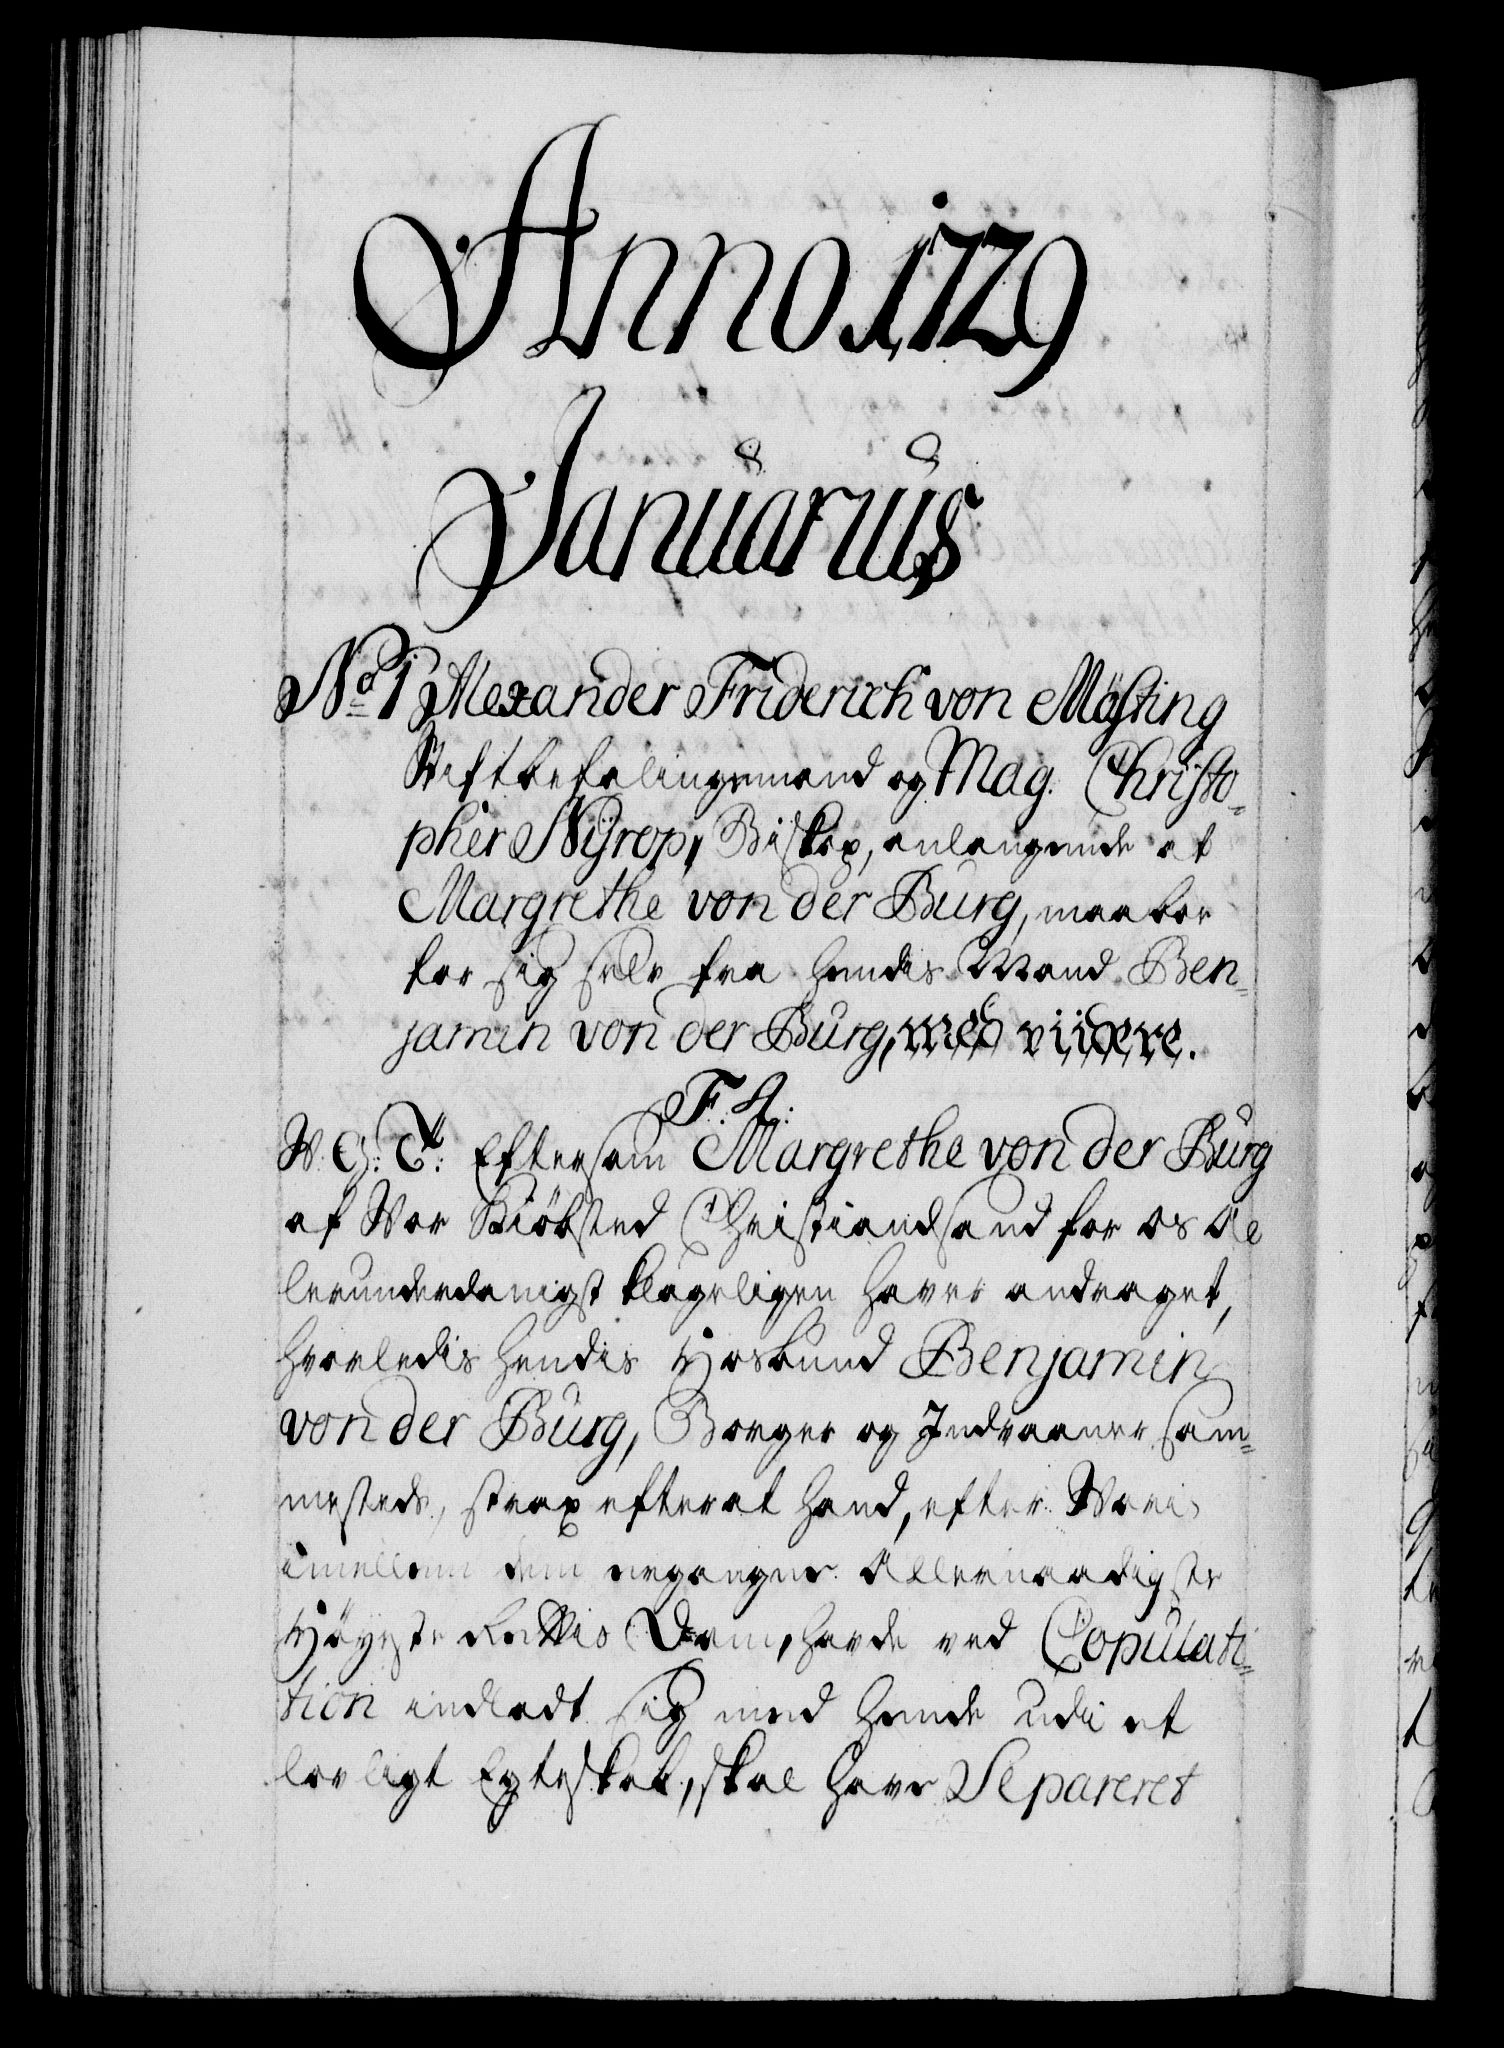 Anno 1729
Januarius
No 1 Alexander Friderich von Møsting
Stiftbefalingsmand og Mag. Christo-
pher Nÿrop, Biskop, anlangende at
Margrethe von der Burg, maa boe
for sig selv fra hendis Mand Ben-
jamin von der Burg, med viidere.
F. 4.
V. G: T: Eftersom Margrethe von der Burg
af Vor Kiöbsted Christiandsand for os Al
lerunderdanigst klageligen haver andraget,
hvorledis hendis Hosbund Benjamin
von der Burg, Borger og Indvaaner sam-
mesteds, strax efterat hand, efter Voris
imellem dem ergangne Allernaadigste
Höyeste Rettis Dom, havde ved Copulati-
tion indladt sig med hende udi et
lovligt Egteskab, skal have Separeret